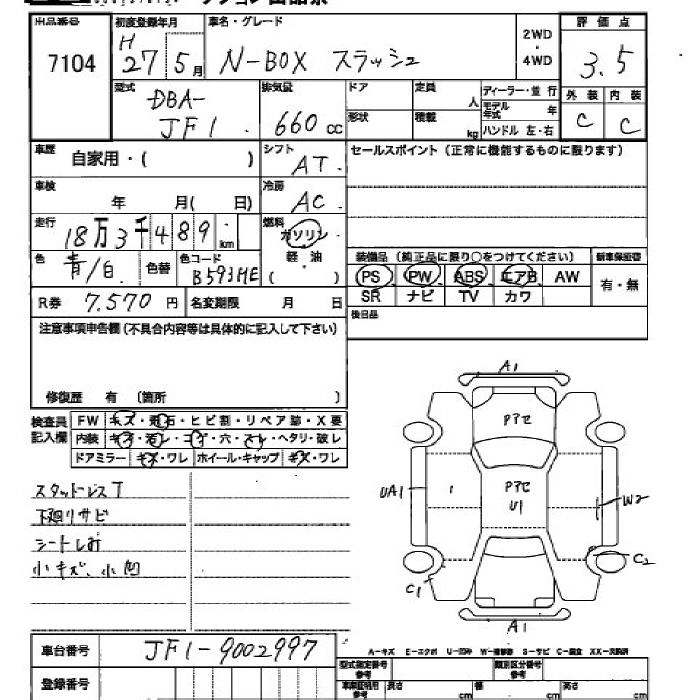 出品番号
7104
初度登録年月
H
27 5月
車名・グレード
N-BOX スラッシュ
2WD
・
4WD
評価点
3.5
型式
DBA-
JF1
排気量
660 cc
ドア
形状
定員 人
積載 kg
ディーラー・並 行
モデル年式 年
ハンドル 左・右
外装 内装
C C
車歴
自家用・( )
シフト
AT
セールスポイント(正常に機能するものに限ります)
車検
年 月( 日)
冷房
AC
走行
18万3千489 km
燃料
ガソリン
軽 油
( )
色
青/白
色替
色コード
B593ME
装備品(純正品に限り○をつけてください)
新車保証書
PS PW ABS エアB AW
SR ナビ TV カワ
有・無
R券 7,570 円
名変期限 月 日
後日品
注意事項申告欄(不具合内容等は具体的に記入して下さい)
修復歴 有 (箇所 )
検査員
記入欄
FW キズ・飛石・ヒビ割・リペア跡・X要
内装 キズ・汚レ・コゲ・穴・スレ・ヘタリ・破レ
ドアミラー キズ・ワレ ホイール・キャップ キズ・ワレ
スタッドレスT
下廻りサビ
シートしみ
小キズ、小凹
A1
Pアセ
UA1
Pアセ
U1
W2
C2
C1
A1
車台番号
JF1-9002997
登録番号
A-キズ E-エクボ U-凹み W-補修跡 S-サビ C-腐食 XX-交換済
型式指定番号
参考
類別区分番号
参考
車庫証明用
参考
長さ cm
幅 cm
高さ cm